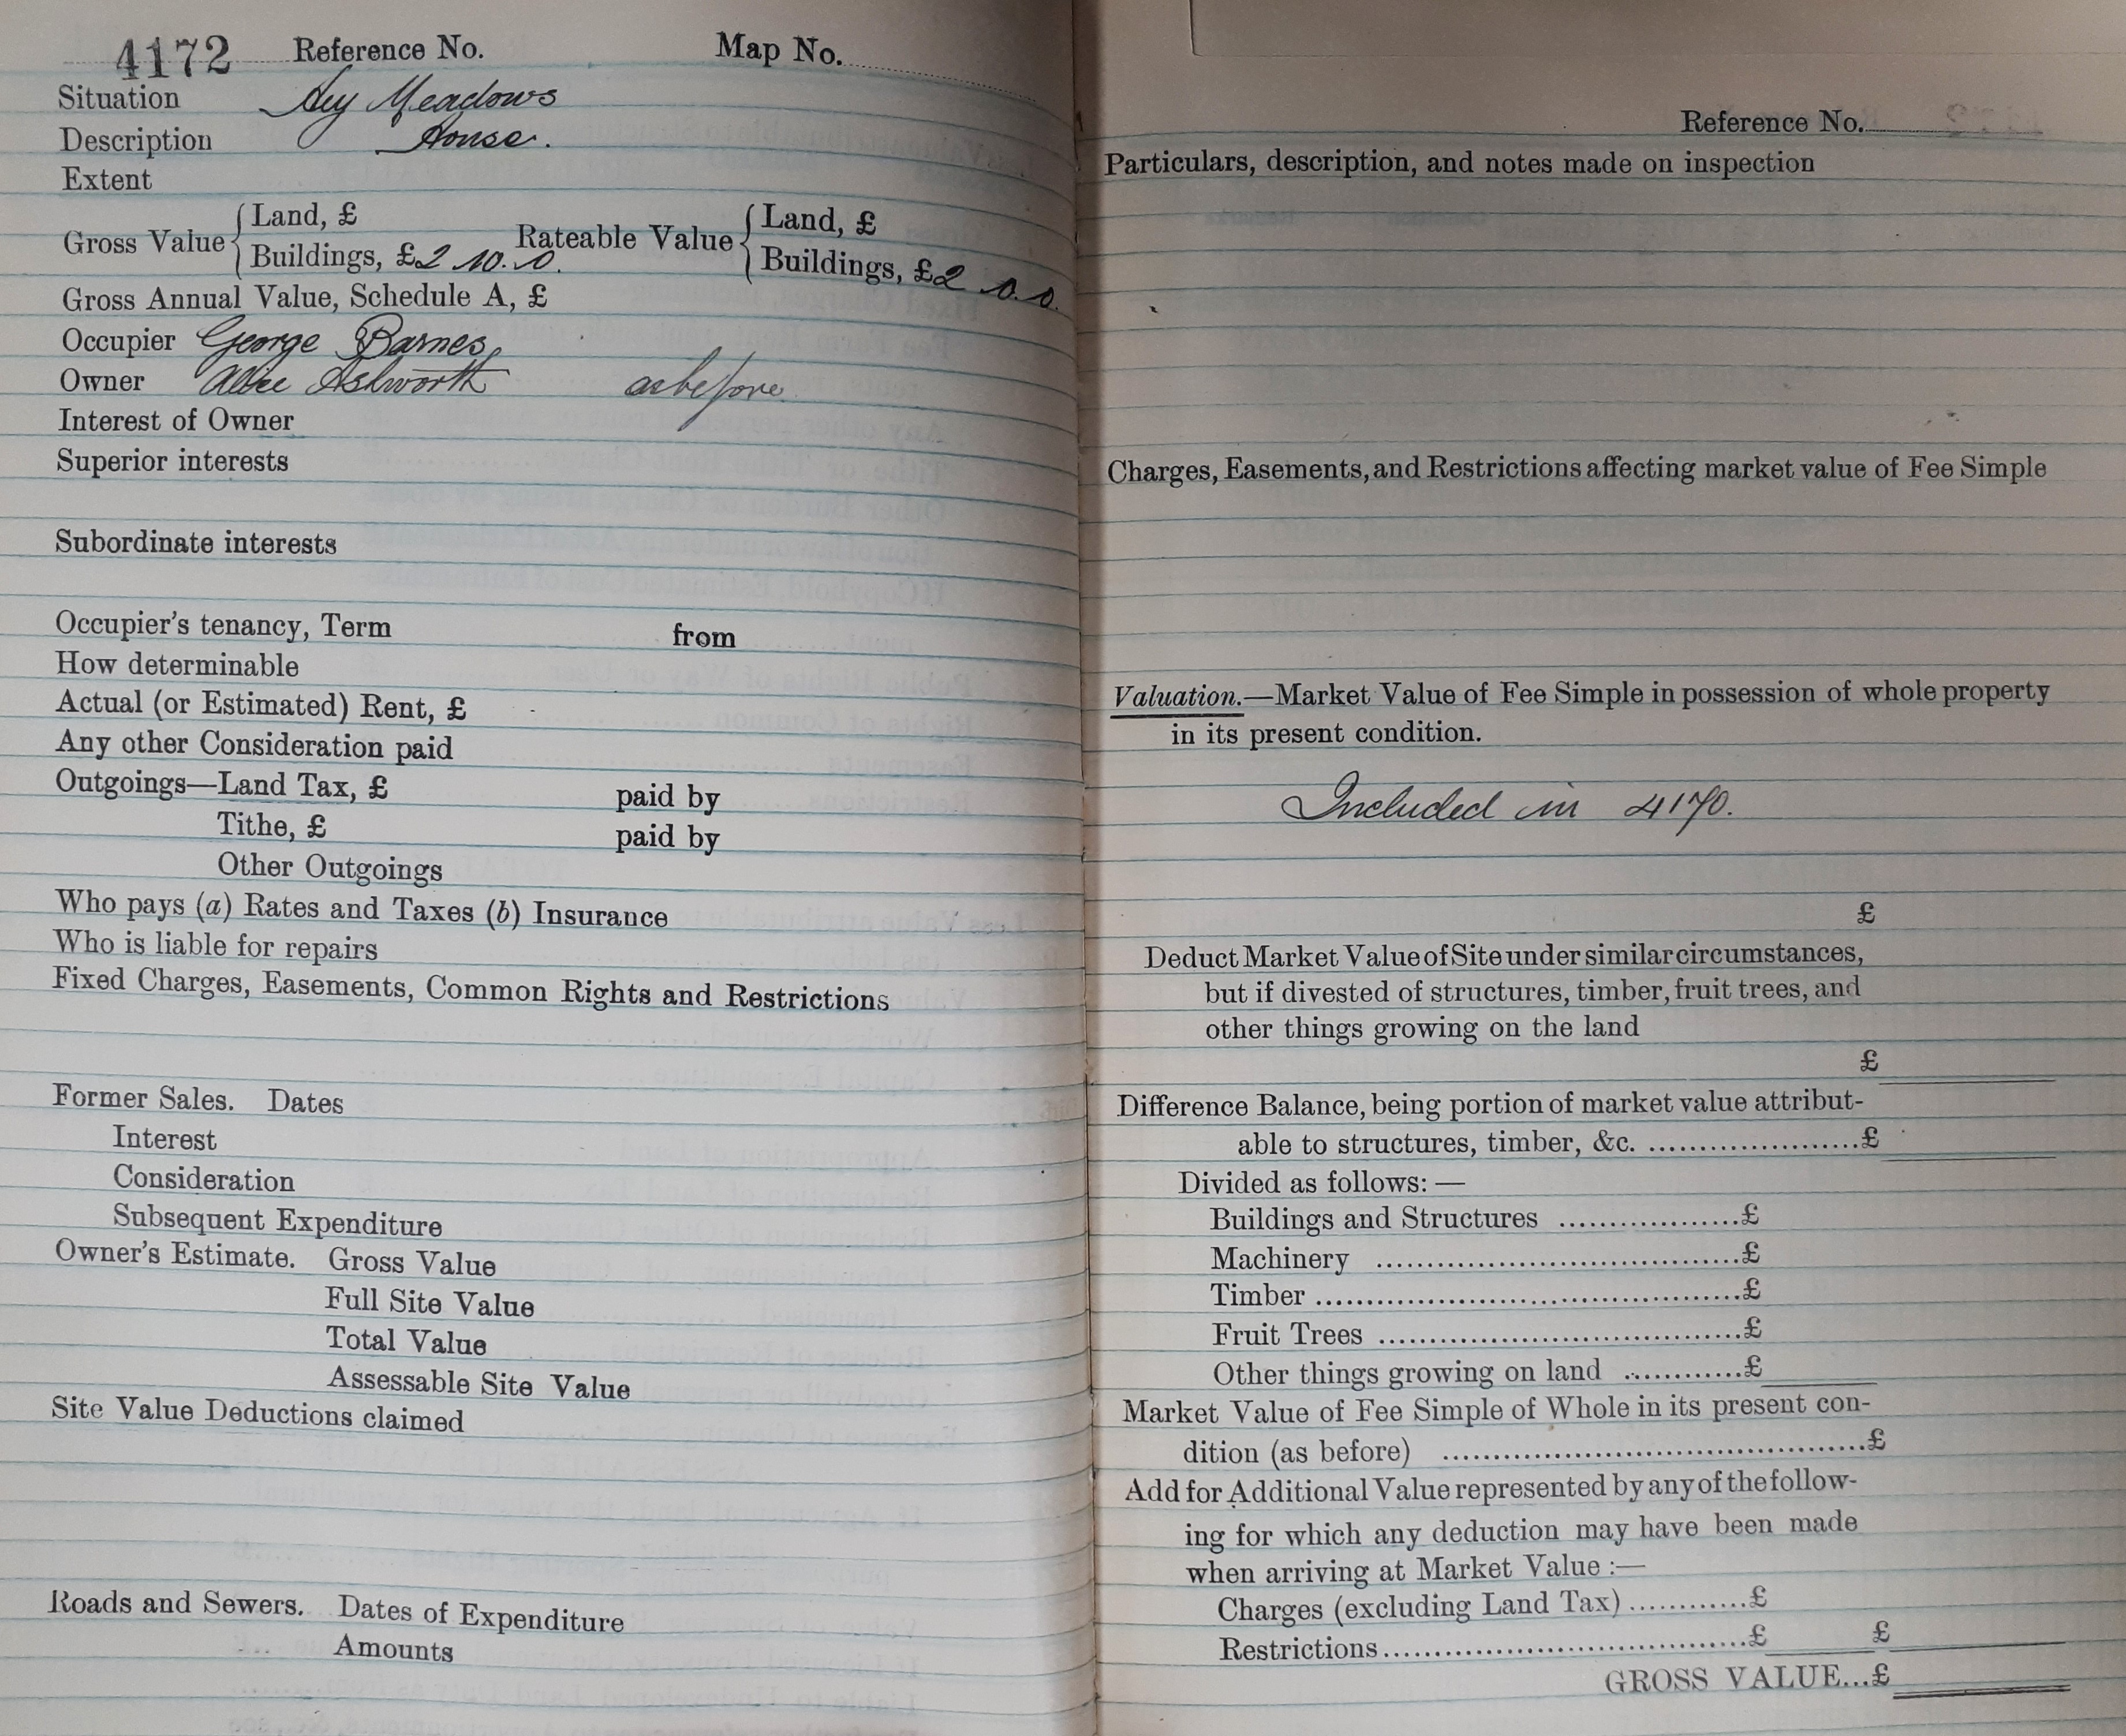 4172 Reference No. Map No.
Situation Meadows
Description House.
Extent
Gross Value { Land, £ Rateable Value { Land, £
Buildings, £2 10. 0. Buildings, £2 0. 0.
Gross Annual Value, Schedule A, £
Occupier George Barnes
Owner Ashworth as before.
Interest of Owner
Superior interests
Subordinate interests
Occupier's tenancy, Term from
How determinable
Actual (or Estimated) Rent, £
Any other Consideration paid
Outgoings—Land Tax, £ paid by
Tithe, £ paid by
Other Outgoings
Who pays (a) Rates and Taxes (b) Insurance
Who is liable for repairs
Fixed Charges, Easements, Common Rights and Restrictions
Former Sales. Dates
Interest
Consideration
Subsequent Expenditure
Owner's Estimate. Gross Value
Full Site Value
Total Value
Assessable Site Value
Site Value Deductions claimed
Roads and Sewers. Dates of Expenditure
Amounts
Reference No.
Particulars, description, and notes made on inspection
Charges, Easements, and Restrictions affecting market value of Fee Simple
Valuation.—Market Value of Fee Simple in possession of whole property
in its present condition.
Included in 4170.
£
Deduct Market Value of Site under similar circumstances,
but if divested of structures, timber, fruit trees, and
other things growing on the land
£
Difference Balance, being portion of market value attribut-
able to structures, timber, &c. ....................£
Divided as follows:—
Buildings and Structures ..................£
Machinery ....................................£
Timber ..........................................£
Fruit Trees ...................................£
Other things growing on land ............£
Market Value of Fee Simple of Whole in its present con-
dition (as before) ..........................................£
Add for Additional Value represented by any of the follow-
ing for which any deduction may have been made
when arriving at Market Value :—
Charges (excluding Land Tax) ............£
Restrictions ....................................£ £
GROSS VALUE...£